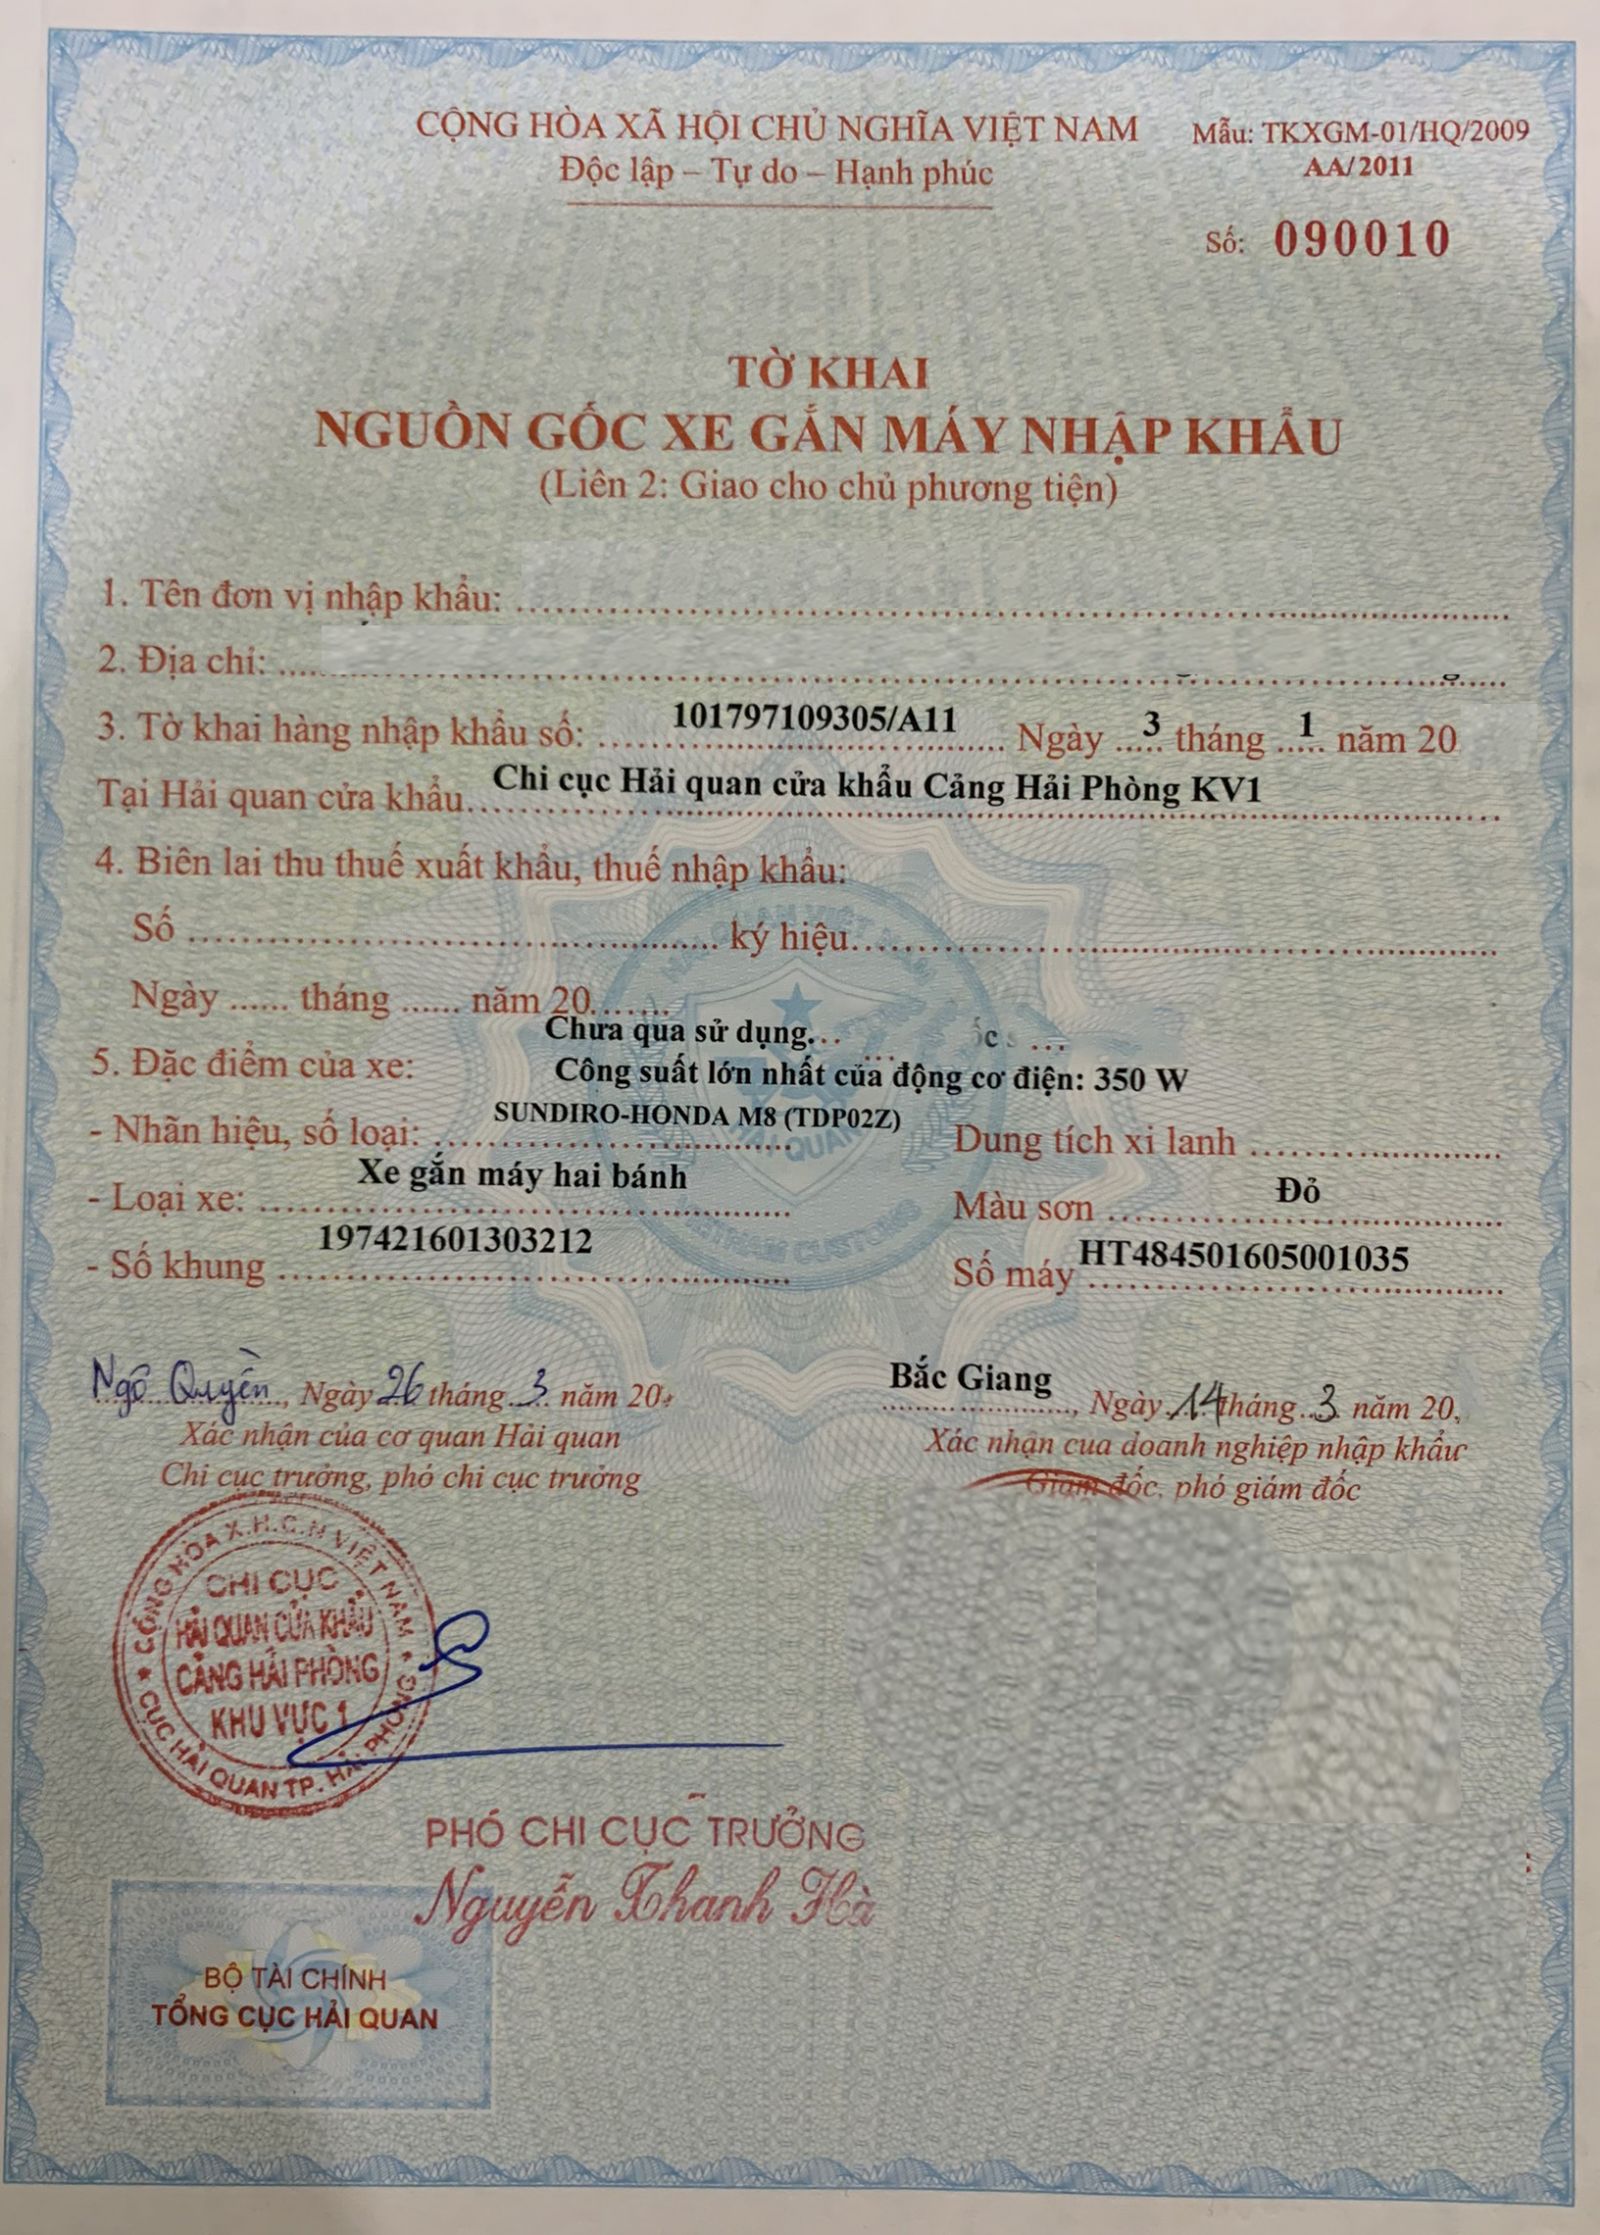 CỘNG HÒA XÃ HỘI CHỦ NGHĨA VIỆT NAM
Độc lập – Tự do – Hạnh phúc
Mẫu: TKXGM-01/HQ/2009
AA/2011
Số: 090010
TỜ KHAI
NGUỒN GỐC XE GẮN MÁY NHẬP KHẨU
(Liên 2: Giao cho chủ phương tiện)
1. Tên đơn vị nhập khẩu:
2. Địa chỉ:
3. Tờ khai hàng nhập khẩu số: 101797109305/A11 Ngày 3 tháng 1 năm 20
Tại Hải quan cửa khẩu Chi cục Hải quan cửa khẩu Cảng Hải Phòng KV1
4. Biên lai thu thuế xuất khẩu, thuế nhập khẩu:
Số ........ ký hiệu........
Ngày ...... tháng ...... năm 20.......
Chưa qua sử dụng
5. Đặc điểm của xe: Công suất lớn nhất của động cơ điện: 350 W
- Nhãn hiệu, số loại: SUNDIRO-HONDA M8 (TDP02Z) Dung tích xi lanh
- Loại xe: Xe gắn máy hai bánh Màu sơn Đỏ
- Số khung 197421601303212 Số máy HT484501605001035
Ngô Quyền, Ngày 26 tháng 3 năm 20
Xác nhận của cơ quan Hải quan
Chi cục trưởng, phó chi cục trưởng
Bắc Giang, Ngày 14 tháng 3 năm 20
Xác nhận của doanh nghiệp nhập khẩu
Giám đốc, phó giám đốc
CỘNG HÒA X.H.C.N VIỆT NAM
CHI CỤC
HẢI QUAN CỬA KHẨU
CẢNG HẢI PHÒNG
KHU VỰC 1
CỤC HẢI QUAN TP. HẢI PHÒNG
PHÓ CHI CỤC TRƯỞNG
Nguyễn Thanh Hà
BỘ TÀI CHÍNH
TỔNG CỤC HẢI QUAN